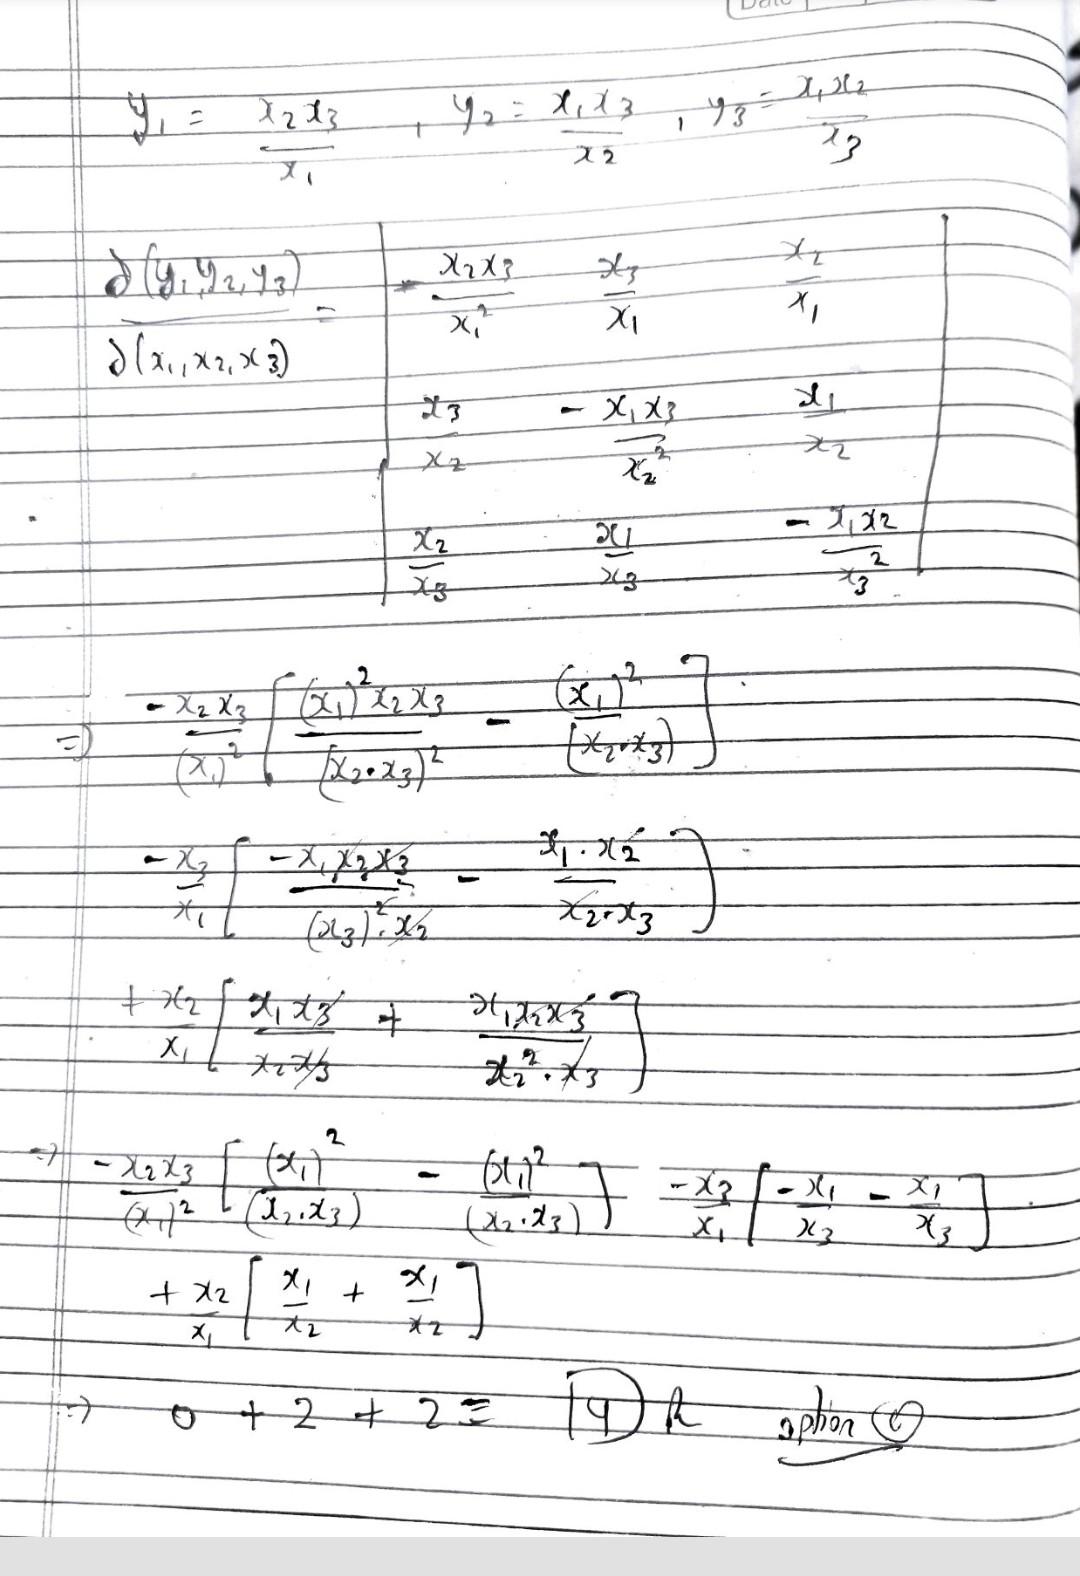 Date
y₁ = x₂x₃/x₁ , y₂ = x₁x₃/x₂ , y₃ = x₁x₂/x₃
∂(y₁,y₂,y₃)/∂(x₁,x₂,x₃) = | -x₂x₃/x₁² x₃/x₁ x₂/x₁ |
| x₃/x₂ -x₁x₃/x₂² x₁/x₂ |
| x₂/x₃ x₁/x₃ -x₁x₂/x₃² |
⇒ -x₂x₃/(x₁)² [ (x₁)²x₂x₃/(x₂·x₃)² - (x₁)²/(x₂·x₃) ]
-x₃/x₁ [ -x₁x₂x₃/(x₃)²·x₂ - x₁·x₂/x₂·x₃ ]
+x₂/x₁ [ x₁x₃/x₂x₃ + x₁x₂x₃/x₂²·x₃ ]
⇒ -x₂x₃/(x₁)² [ (x₁)²/(x₂·x₃) - (x₁)²/(x₂·x₃) ] -x₃/x₁ [ -x₁/x₃ - x₁/x₃ ]
+x₂/x₁ [ x₁/x₂ + x₁/x₂ ]
⇒ 0 + 2 + 2 = 4 option